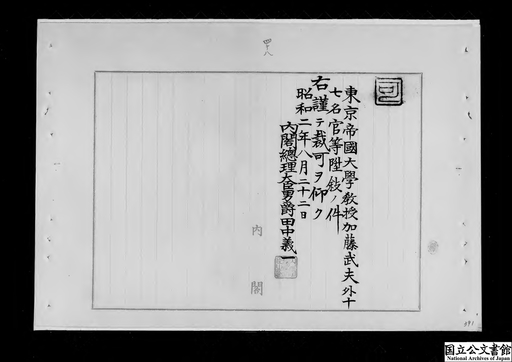 四八
可
東京帝國大學教授加藤武夫外十
七名官等陞敍ノ件
右謹テ裁可ヲ仰ク
昭和二年八月二十二日
内閣總理大臣男爵田中義一
内閣
国立公文書館
National Archives of Japan